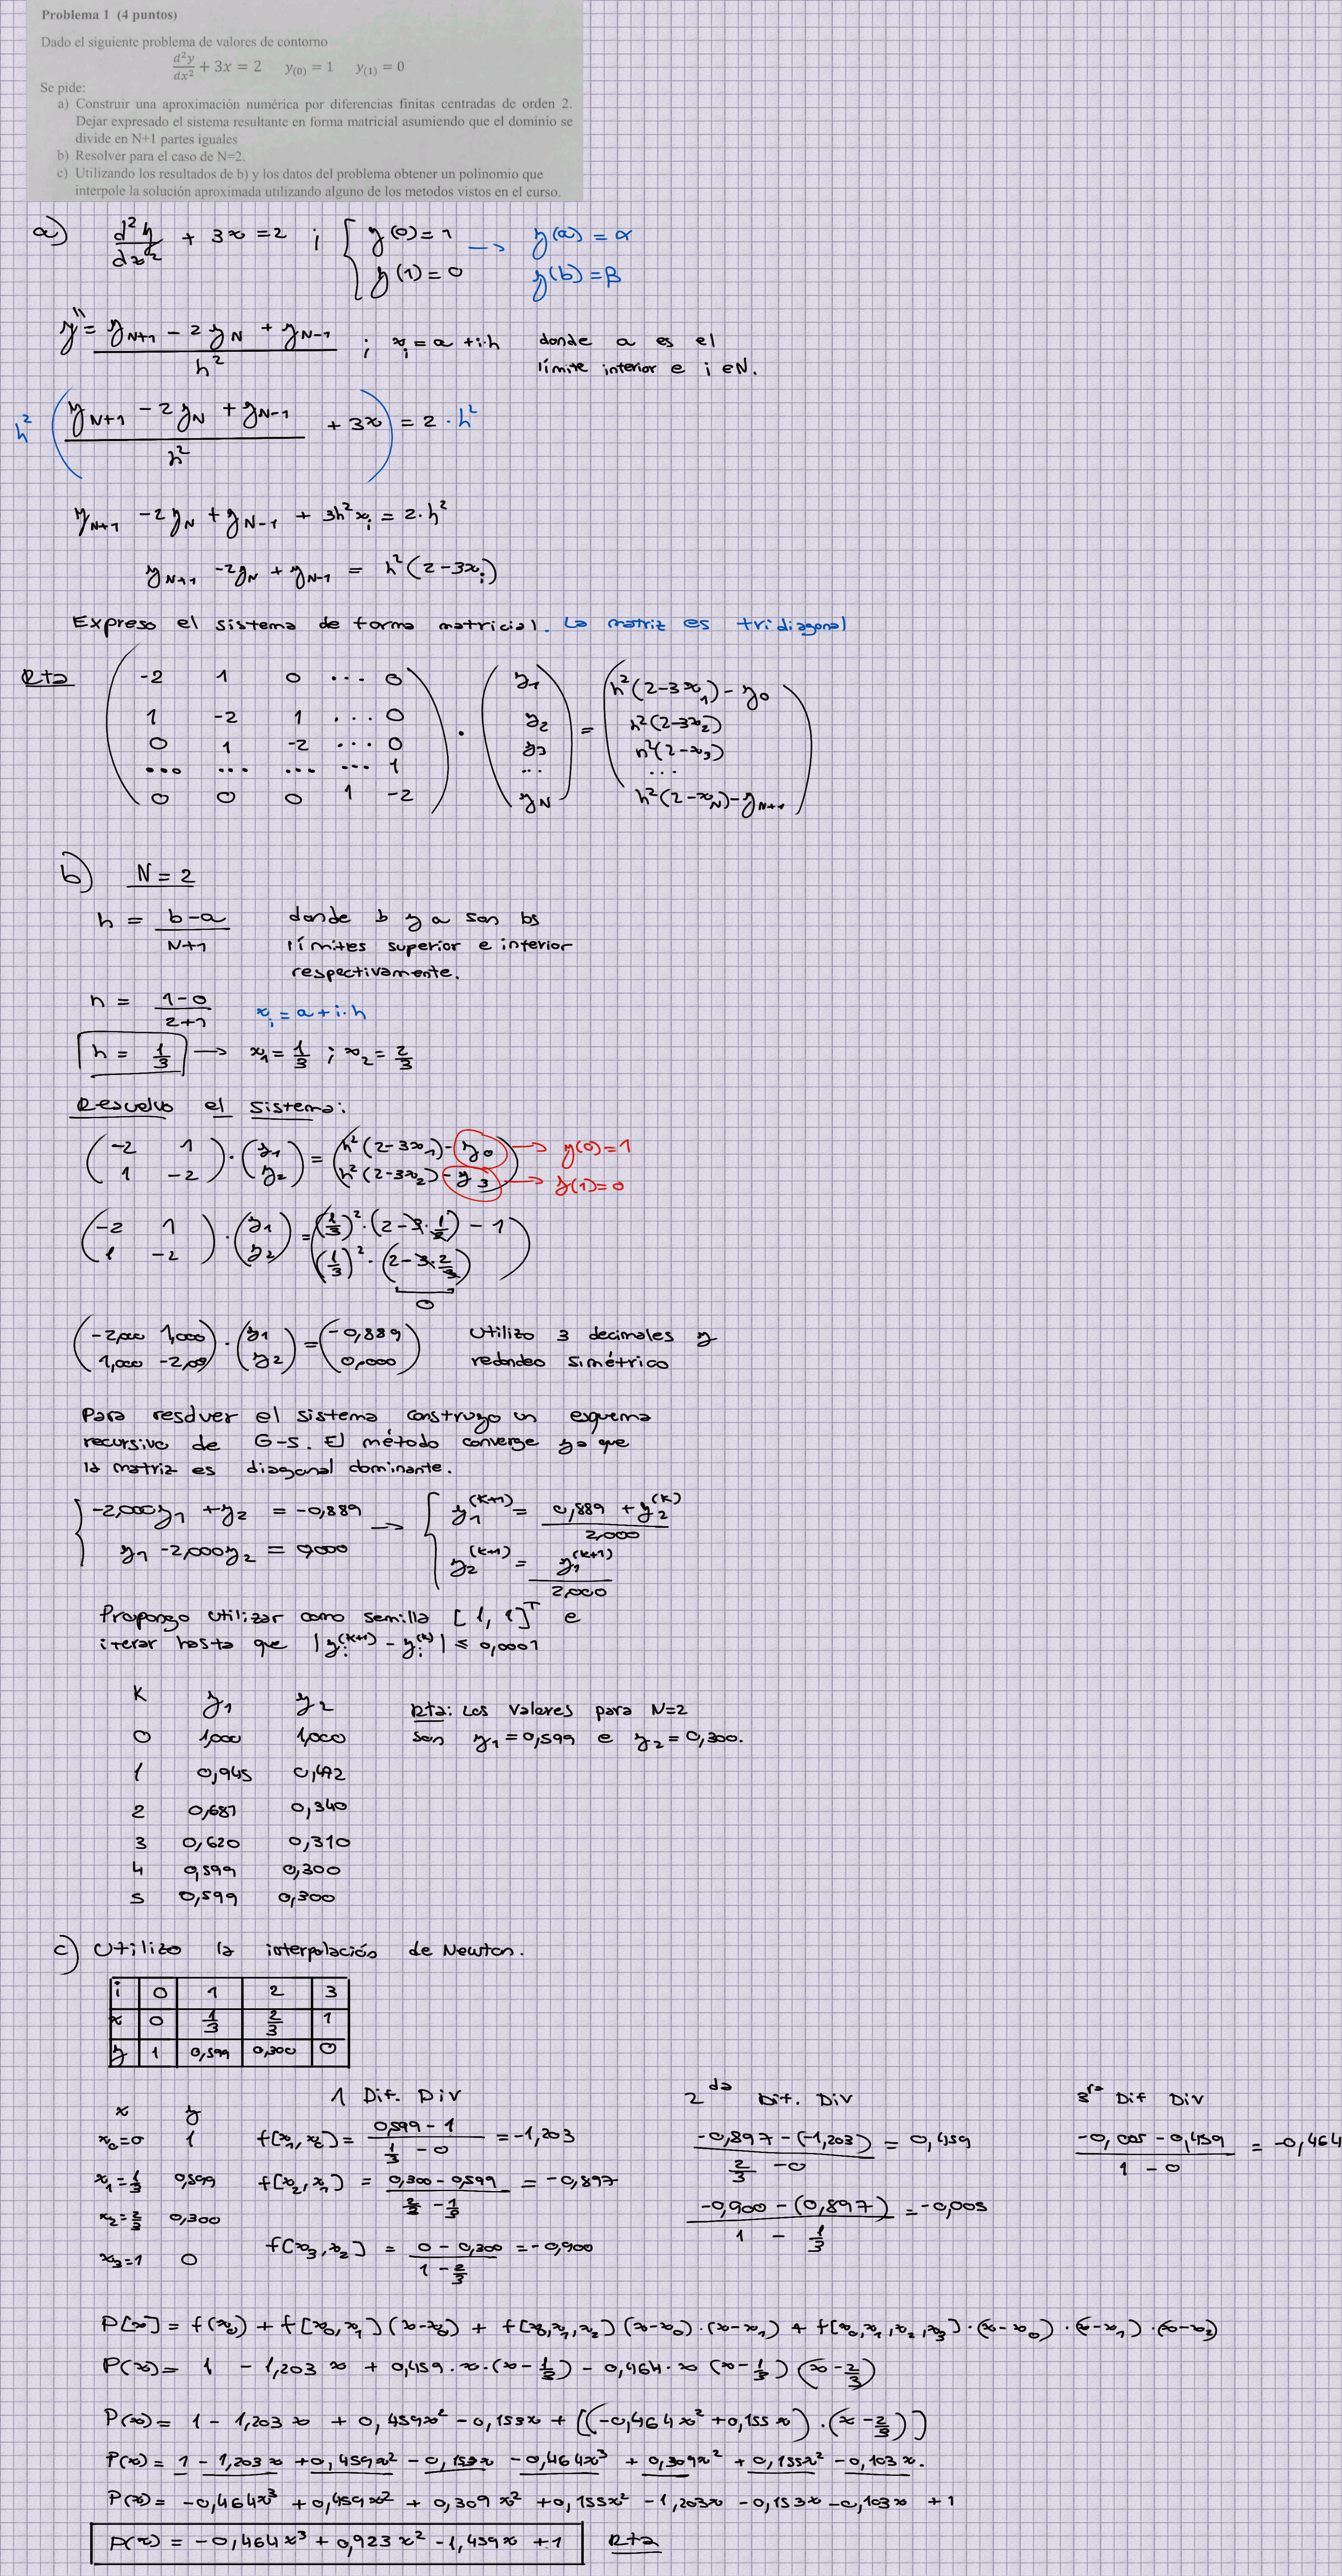 Problema 1 (4 puntos)
Dado el siguiente problema de valores de contorno
d²y/dx² + 3x = 2 y(0) = 1 y(1) = 0
Se pide:
a) Construir una aproximación numérica por diferencias finitas centradas de orden 2.
Dejar expresado el sistema resultante en forma matricial asumiendo que el dominio se
divide en N+1 partes iguales
b) Resolver para el caso de N=2.
c) Utilizando los resultados de b) y los datos del problema obtener un polinomio que
interpole la solución aproximada utilizando alguno de los metodos vistos en el curso.
a) d²y/dx² + 3x = 2 ; { y(0) = 1 → y(a) = α
y(1) = 0 y(b) = β
y'' = (y_{N+1} - 2y_N + y_{N-1})/h² ; x_i = a + i·h donde a es el
límite inferior e i ∈ N.
h² ((y_{N+1} - 2y_N + y_{N-1})/h² + 3x) = 2·h²
y_{N+1} - 2y_N + y_{N-1} + 3h²x_i = 2·h²
y_{N+1} - 2y_N + y_{N-1} = h²(2-3x_i)
Expreso el sistema de forma matricial. La matriz es tridiagonal
Rta
-2 1 0 ... 0 y_1 h²(2-3x_1) - y_0
1 -2 1 ... 0 y_2 h²(2-3x_2)
0 1 -2 ... 0 · y_3 = h²(2-x_3)
... ... ... ... 1 ... ...
0 0 0 1 -2 y_N h²(2-x_N) - y_{N+1}
b) N = 2
h = (b-a)/(N+1) donde b y a son los
límites superior e inferior
respectivamente.
h = (1-0)/(2+1) x_i = a + i·h
h = 1/3 → x_1 = 1/3 ; x_2 = 2/3
Resuelvo el sistema:
(-2 1) · (y_1) = (h²(2-3x_1) - y_0) → y(0) = 1
(1 -2) (y_2) (h²(2-3x_2) - y_3) → y(1) = 0
(-2 1) · (y_1) = ((1/3)²·(2-3·1/3) - 1)
(1 -2) (y_2) ((1/3)²·(2-3·2/3))
0
(-2,000 1,000) · (y_1) = (-0,889) Utilizo 3 decimales y
(1,000 -2,00) (y_2) (0,000) redondeo simétrico
Para resolver el sistema construyo un esquema
recursivo de G-S. El método converge ya que
la matriz es diagonal dominante.
{ -2,000y_1 + y_2 = -0,889 → { y_1^(k+1) = (0,889 + y_2^(k))/2,000
y_1 - 2,000y_2 = 0,000 y_2^(k+1) = y_1^(k+1)/2,000
Propongo utilizar como semilla [1, 1]^T e
iterar hasta que |y_i^(k+1) - y_i^(k)| ≤ 0,0001
K y_1 y_2 Rta: Los valores para N=2
0 1,000 1,000 son y_1 = 0,599 e y_2 = 0,300.
1 0,945 0,472
2 0,681 0,340
3 0,620 0,310
4 0,599 0,300
5 0,599 0,300
c) Utilizo la interpolación de Newton.
i 0 1 2 3
x 0 1/3 2/3 1
y 1 0,599 0,300 0
x y 1 Dif. Div 2da Dif. Div 3ra Dif Div
x_0=0 1 f[x_1,x_0] = (0,599 - 1)/(1/3 - 0) = -1,203 (-0,897 - (-1,203))/(2/3 - 0) = 0,459 (-0,005 - 0,459)/(1 - 0) = -0,464
x_1=1/3 0,599 f[x_2,x_1] = (0,300 - 0,599)/(2/3 - 1/3) = -0,897 (-0,900 - (0,897))/(1 - 1/3) = -0,005
x_2=2/3 0,300
x_3=1 0 f[x_3,x_2] = (0 - 0,300)/(1 - 2/3) = -0,900
P[x] = f(x_0) + f[x_0,x_1](x-x_0) + f[x_0,x_1,x_2](x-x_0)·(x-x_1) + f[x_0,x_1,x_2,x_3]·(x-x_0)·(x-x_1)·(x-x_2)
P(x) = 1 - 1,203x + 0,459·x·(x-1/3) - 0,464·x(x-1/3)(x-2/3)
P(x) = 1 - 1,203x + 0,459x² - 0,153x + [(-0,464x² + 0,155x)·(x-2/3)]
P(x) = 1 - 1,203x + 0,459x² - 0,153x - 0,464x³ + 0,309x² + 0,155x² - 0,103x.
P(x) = -0,464x³ + 0,459x² + 0,309x² + 0,155x² - 1,203x - 0,153x - 0,103x + 1
P(x) = -0,464x³ + 0,923x² - 1,459x + 1 Rta